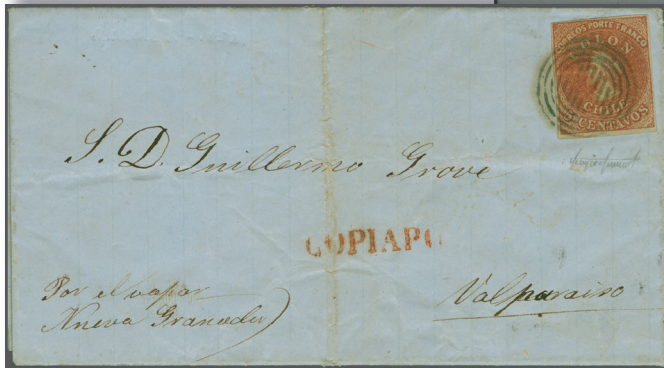 CORREOS PORTE FRANCO
COLON
CHILE
CENTAVOS
S. D. Guillermo Grove
COPIAPO
Por el vapor
Nueva Granada
Valparaiso